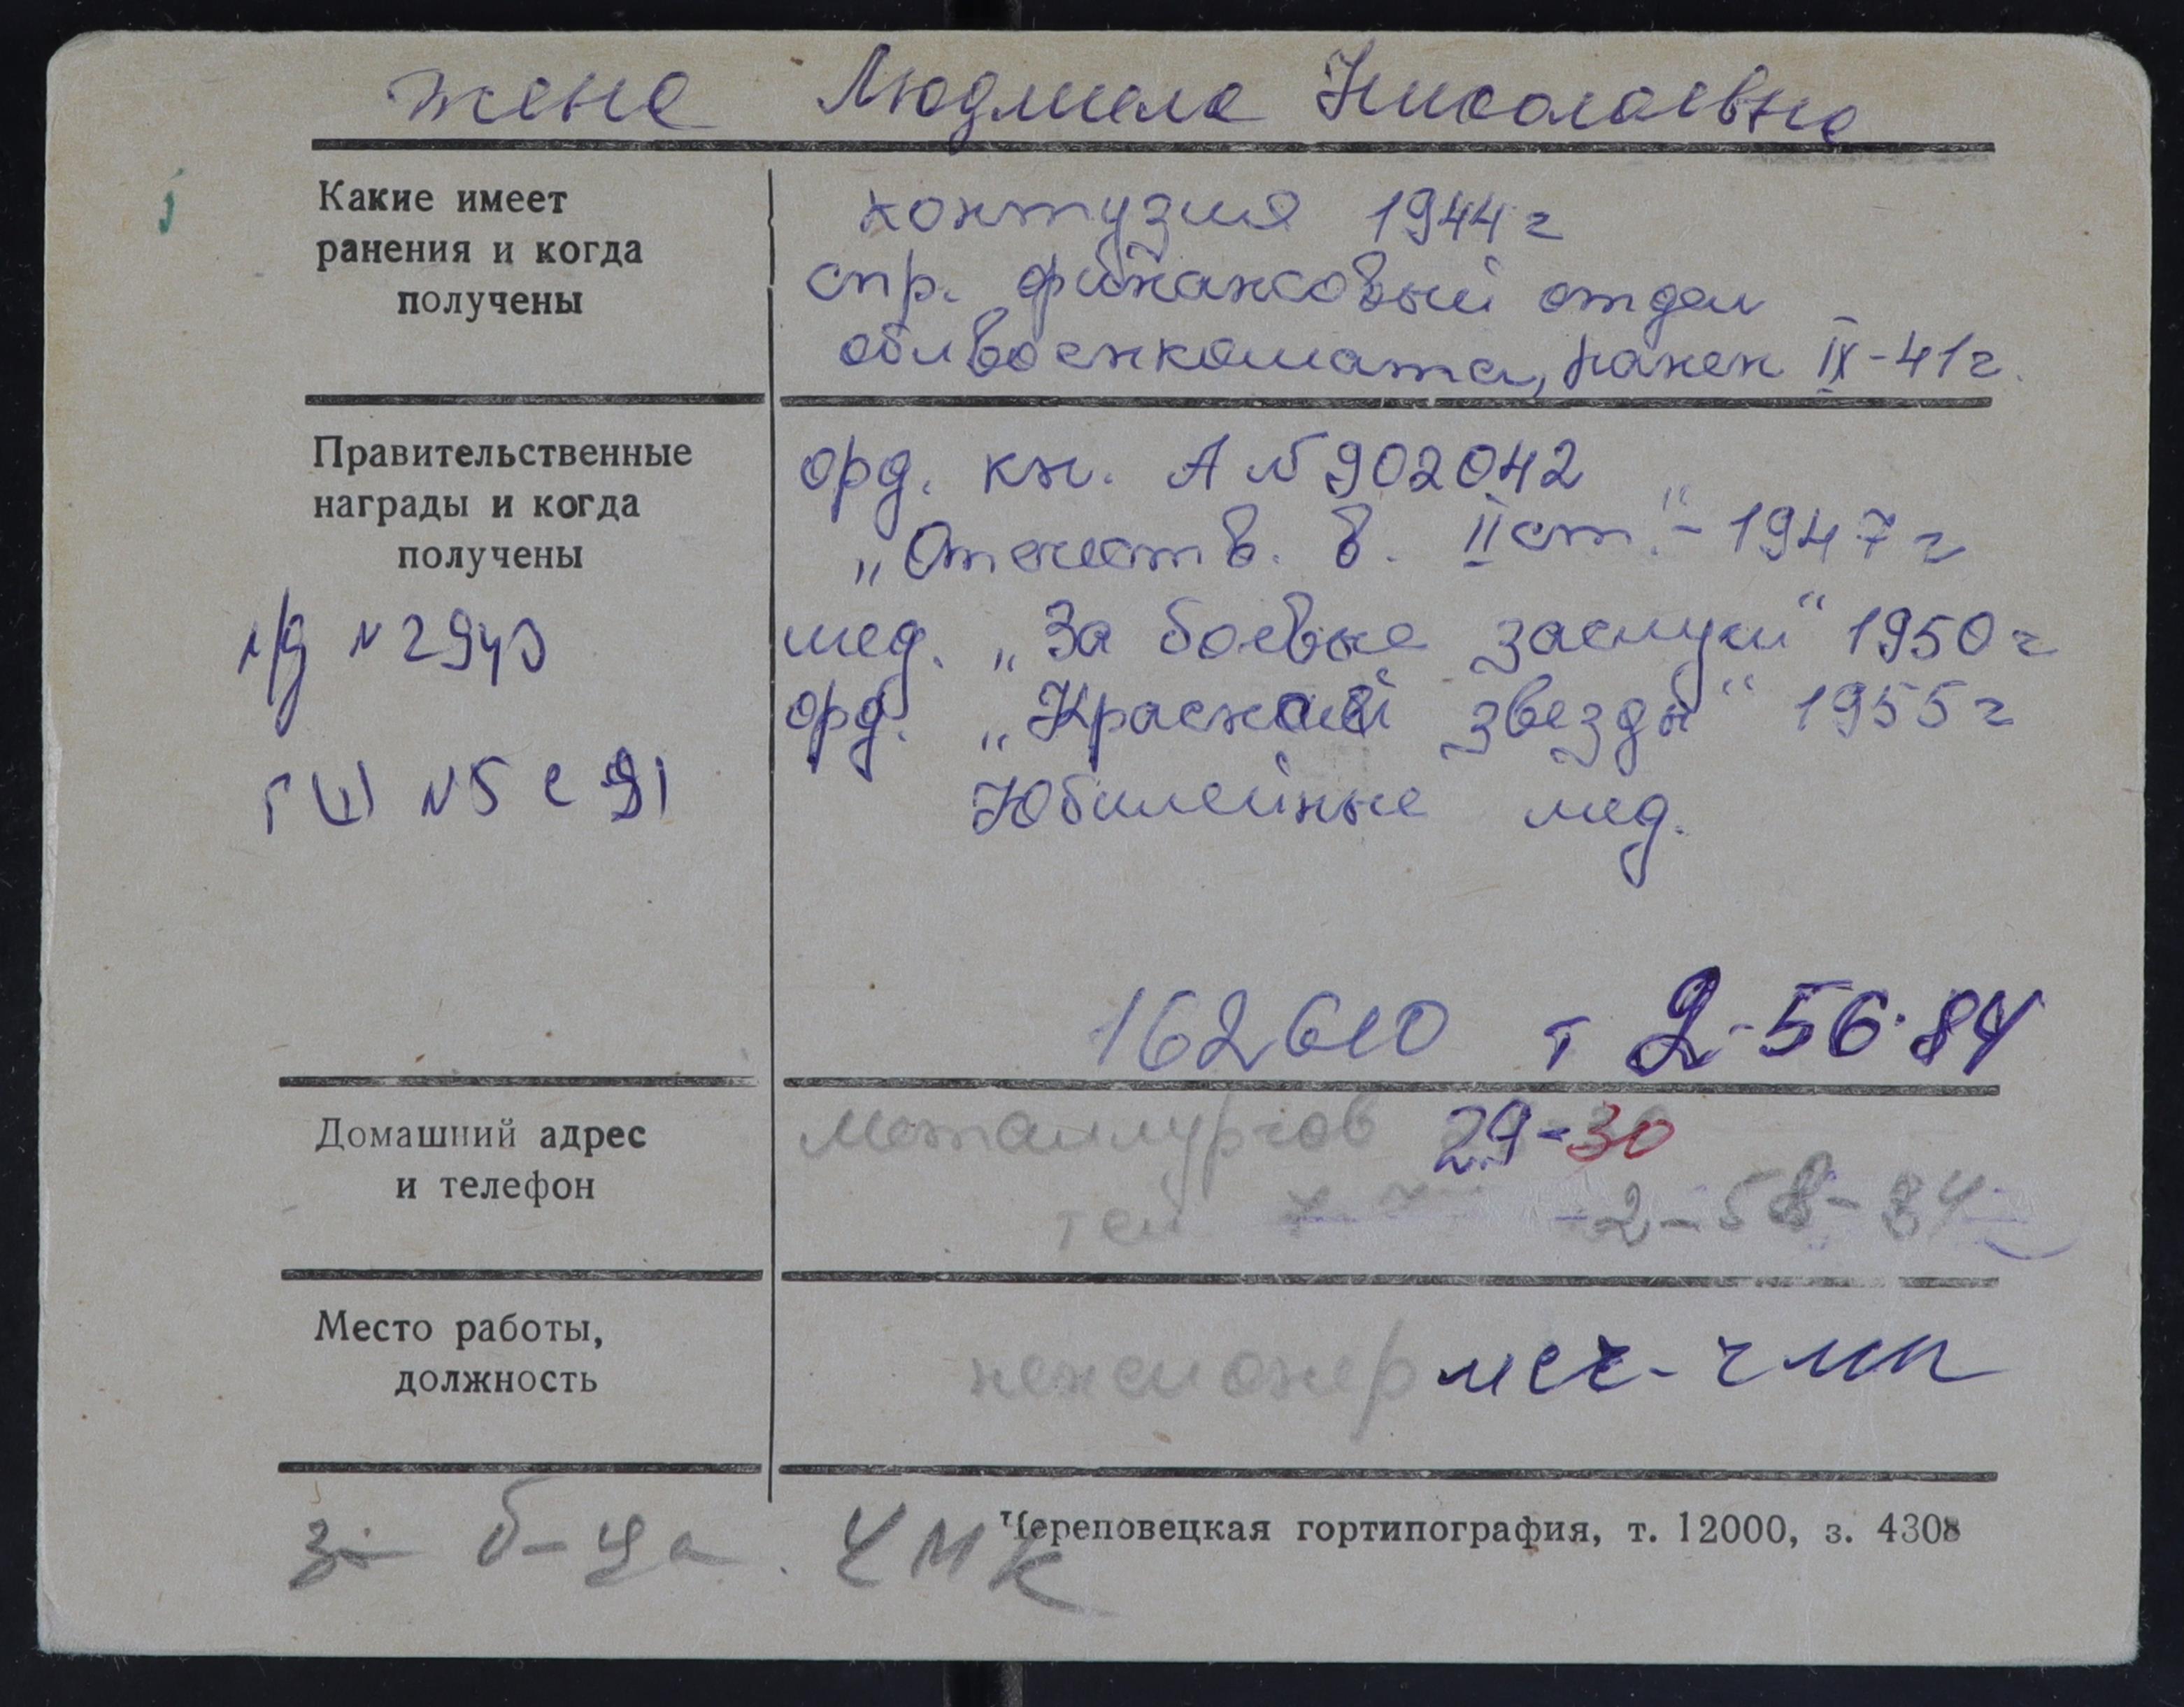 жена Людмила Николаевна
Какие имеет
ранения и когда
получены
контузия 1944 г
спр. финансовый отдел
облвоенкомата, ранен IX-41 г.
Правительственные
награды и когда
получены
орд. кн. А № 902042
„Отечеств. в. II ст.“ - 1947 г
мед. „За боевые заслуги“ 1950 г
орд. „Красной звезды“ 1955 г
Юбилейные мед.
л/д № 2943
ГШ № 5 с 91
162610 т 2-56-84
Домашний адрес
и телефон
Металлургов 29-30
тел 2-58-84
Место работы,
должность
пенсионер
б-ца ЧМК
Череповецкая гортипография, т. 12000, з. 4308